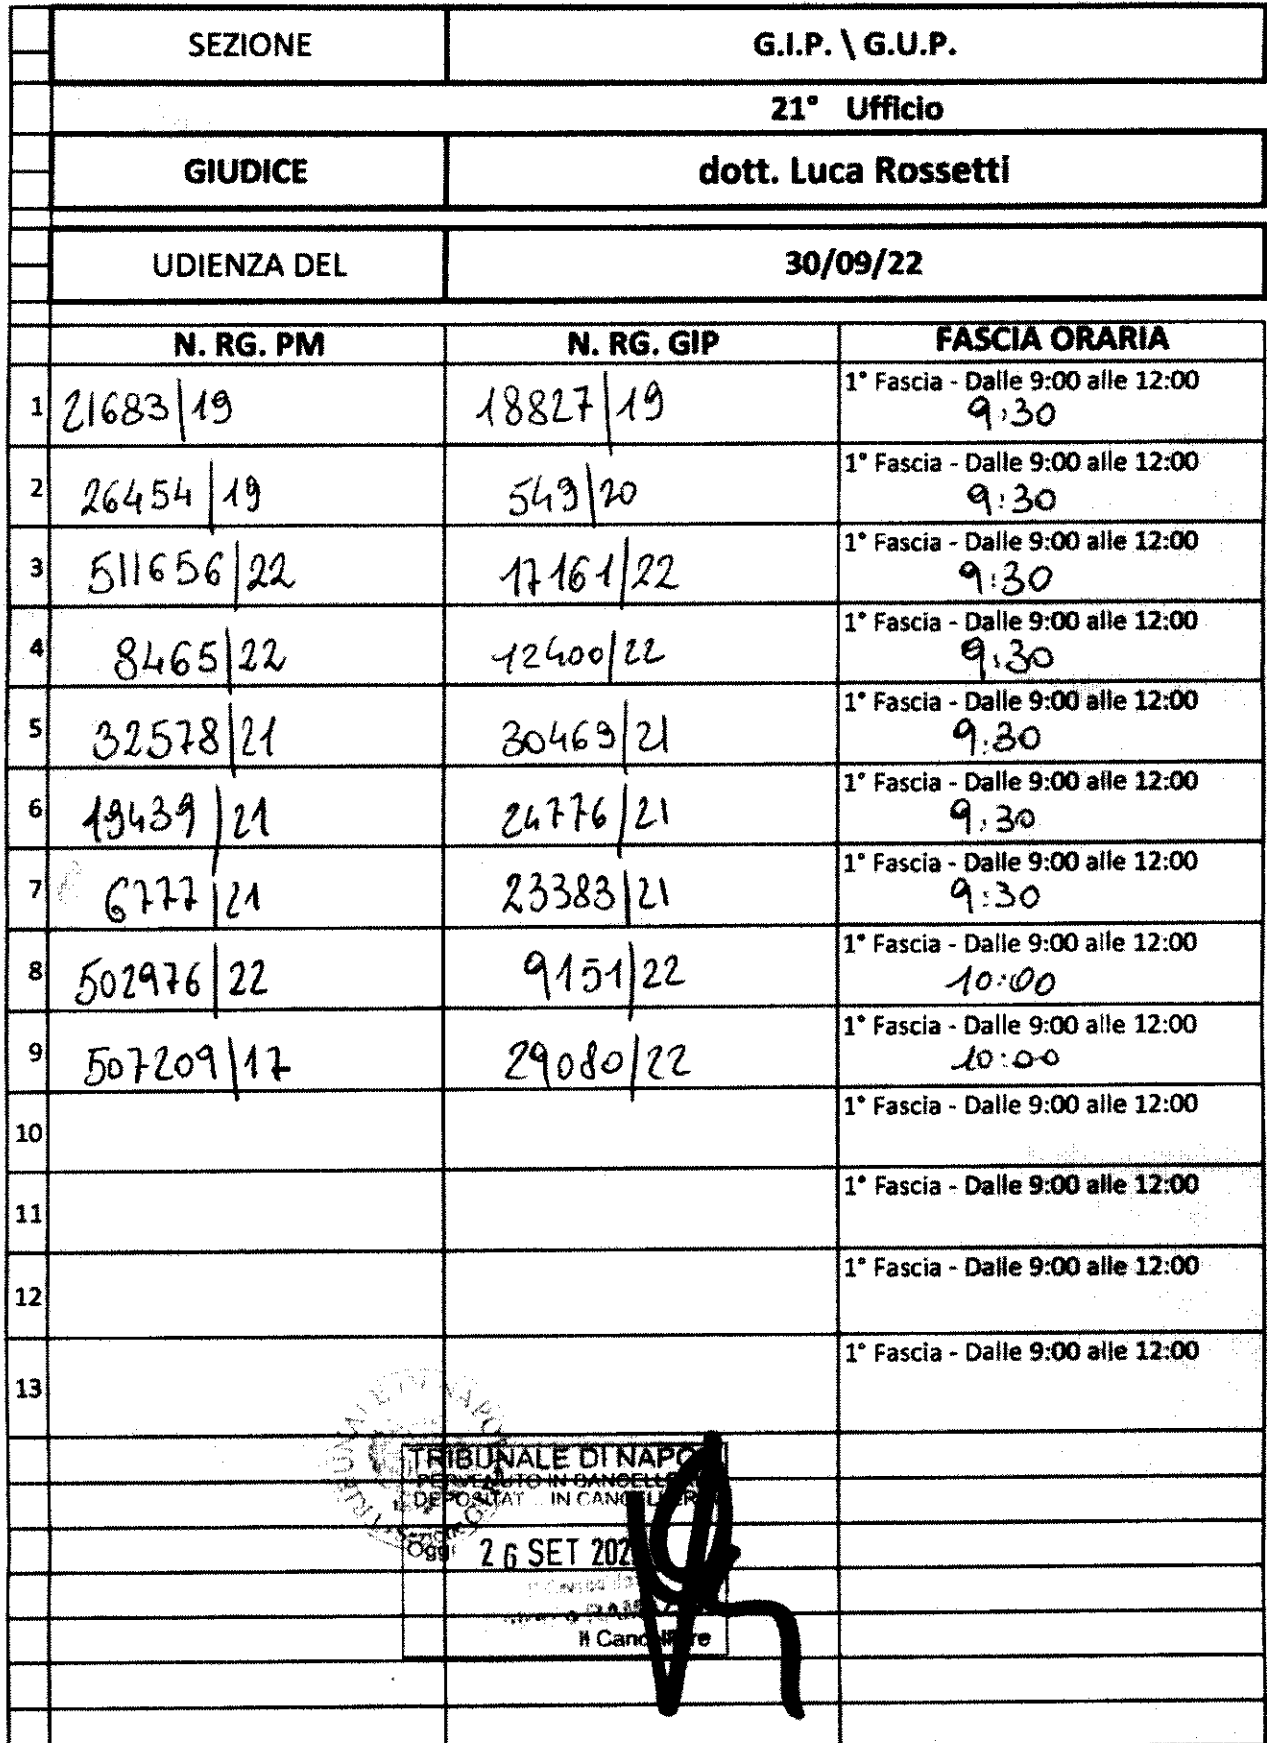 SEZIONE G.I.P. \ G.U.P.
21° Ufficio
GIUDICE dott. Luca Rossetti
UDIENZA DEL 30/09/22
N. RG. PM N. RG. GIP FASCIA ORARIA
1 21683|19 18827|19 1° Fascia - Dalle 9:00 alle 12:00
9:30
2 26454|19 549|20 1° Fascia - Dalle 9:00 alle 12:00
9:30
3 511656|22 17161|22 1° Fascia - Dalle 9:00 alle 12:00
9:30
4 8465|22 12400|22 1° Fascia - Dalle 9:00 alle 12:00
9:30
5 32578|21 30469|21 1° Fascia - Dalle 9:00 alle 12:00
9:30
6 19439|21 24776|21 1° Fascia - Dalle 9:00 alle 12:00
9:30
7 6777|21 23383|21 1° Fascia - Dalle 9:00 alle 12:00
9:30
8 502976|22 9151|22 1° Fascia - Dalle 9:00 alle 12:00
10:00
9 507209|17 29080|22 1° Fascia - Dalle 9:00 alle 12:00
10:00
10 1° Fascia - Dalle 9:00 alle 12:00
11 1° Fascia - Dalle 9:00 alle 12:00
12 1° Fascia - Dalle 9:00 alle 12:00
13 1° Fascia - Dalle 9:00 alle 12:00
TRIBUNALE DI NAPO
PERVENUTO IN CANCELLE
DEPOSITAT IN CANCELLER
Oggi 26 SET 202
Il Cancelliere